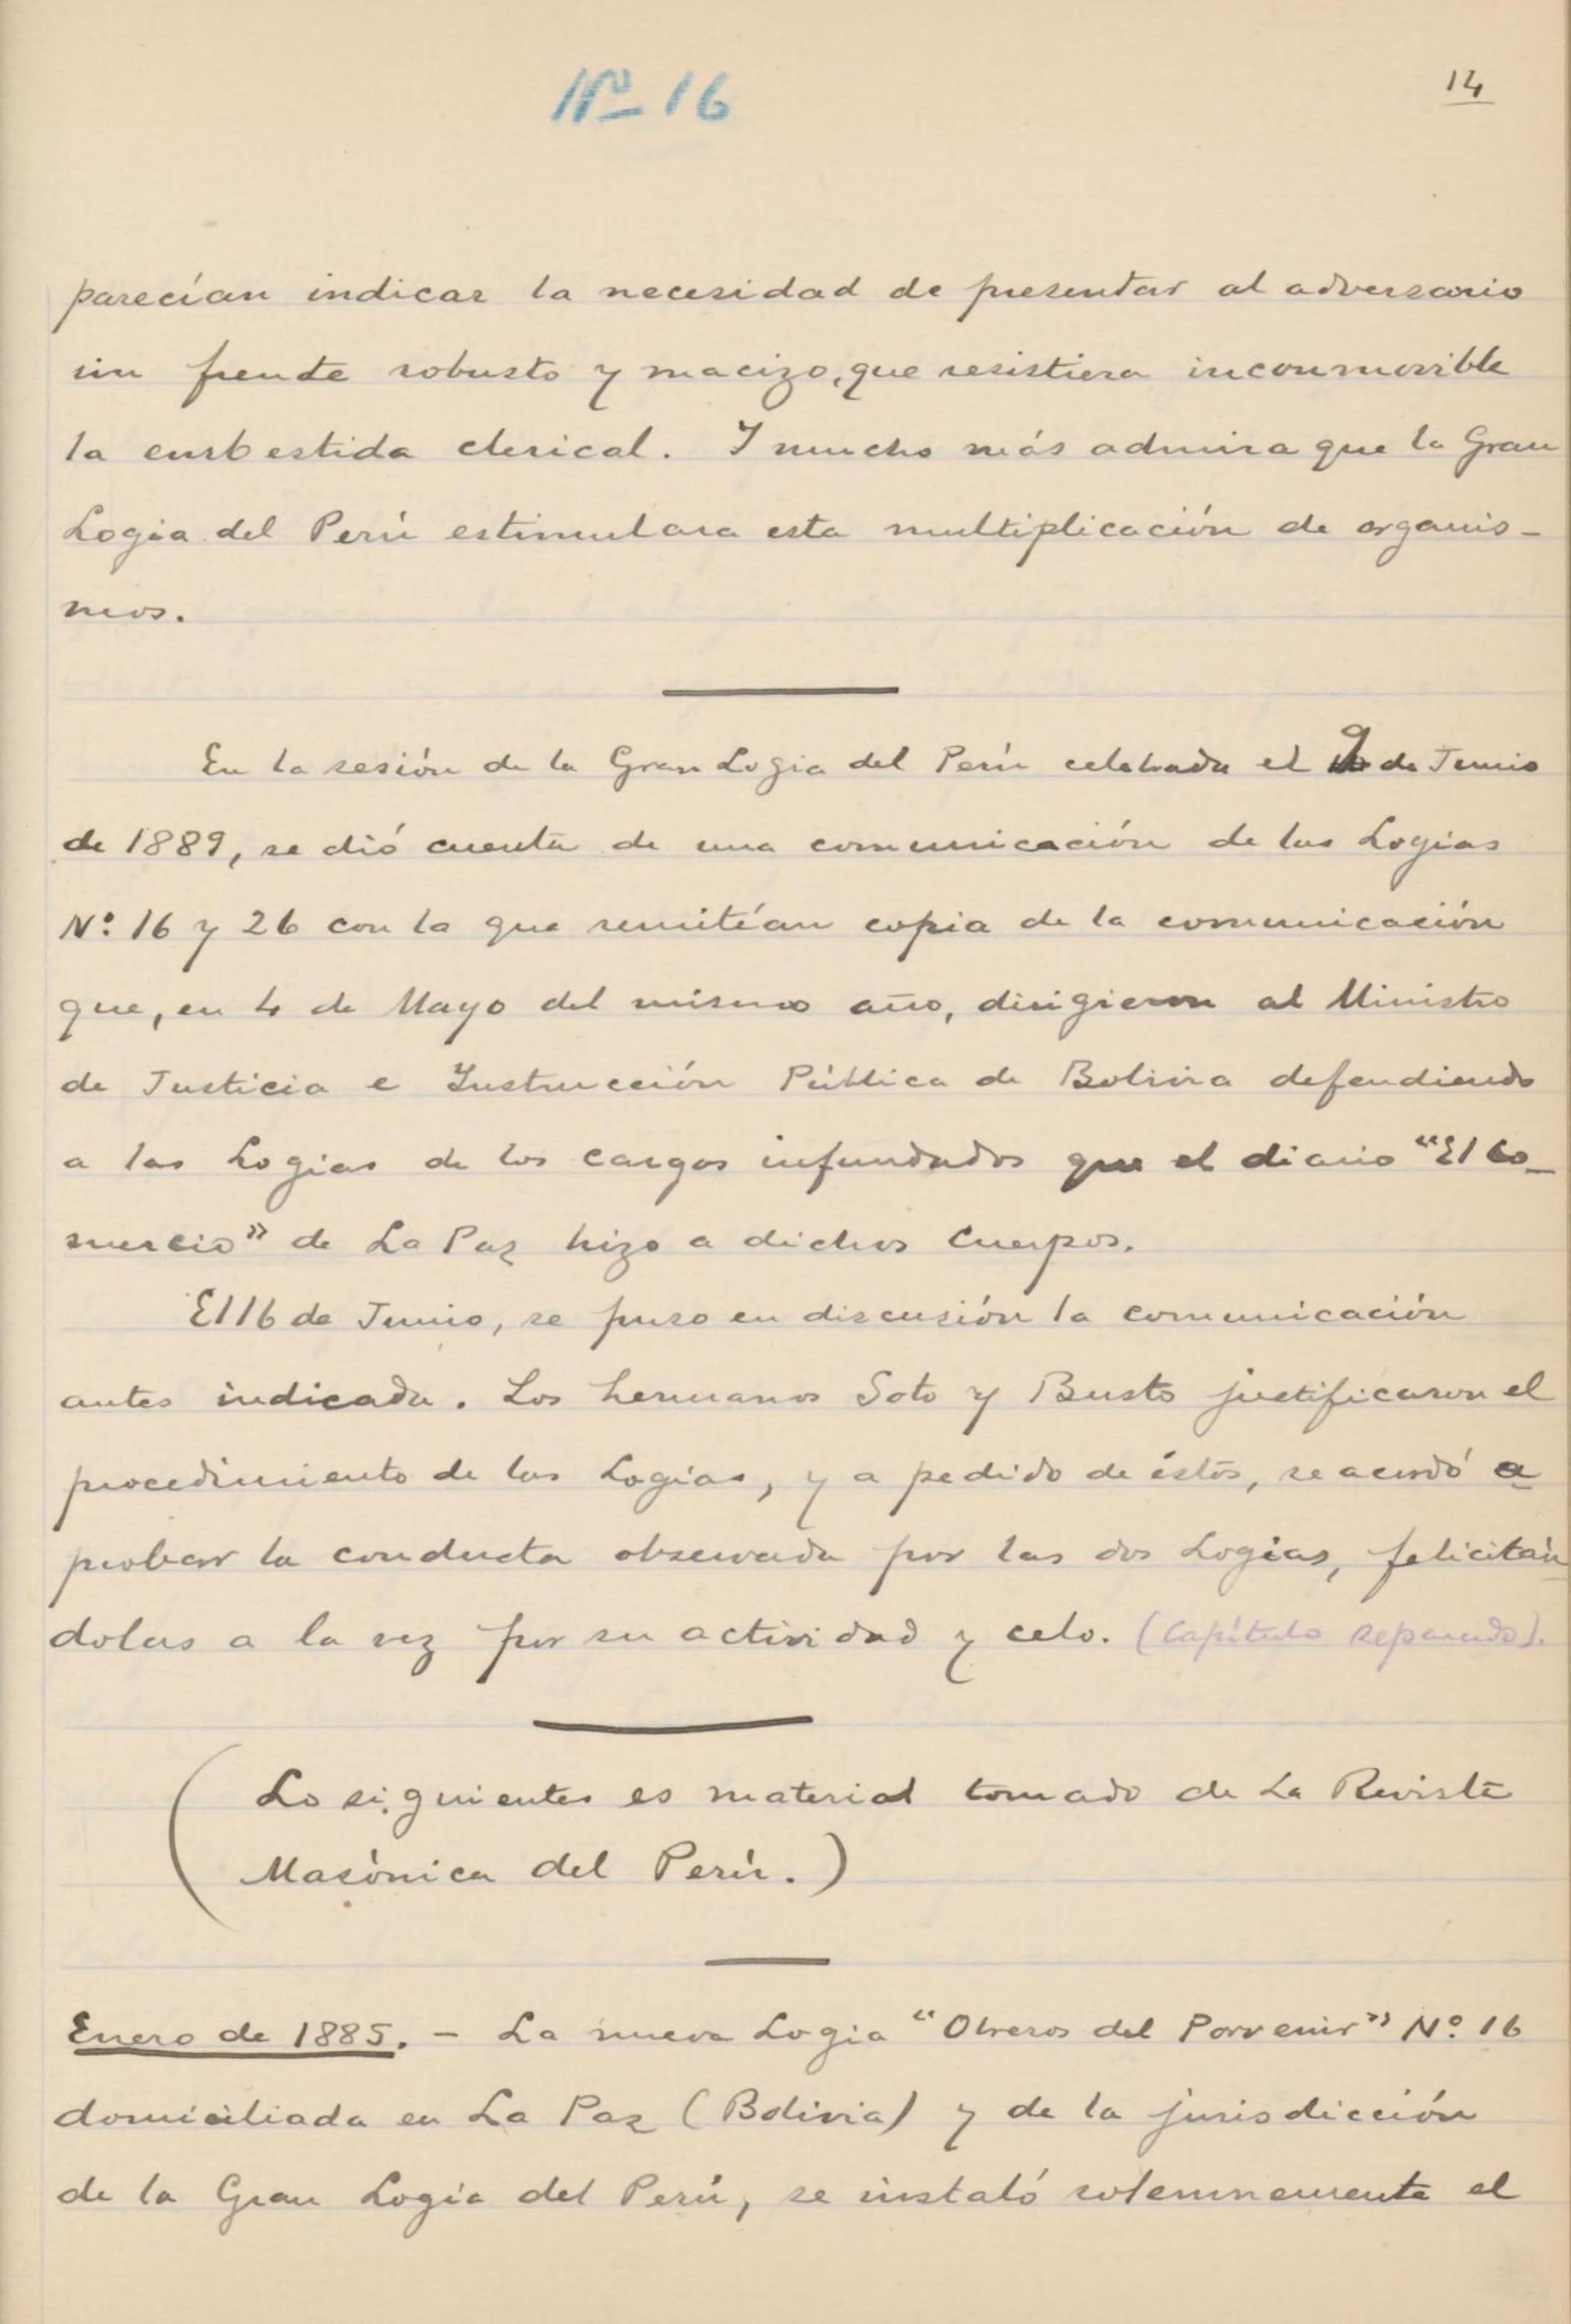 Nº 16
14
parecían indicar la necesidad de presentar al adversario
un frente robusto y macizo, que resistiera inconmovible
la embestida clerical. I mucho más admira que la Gran
Logia del Perú estimulara esta multiplicación de organis-
mos.
En la sesión de la Gran Logia del Perú celebrada el 9 de Junio
de 1889, se dió cuenta de una comunicación de las Logias
Nº 16 y 26 con la que remitían copia de la comunicación
que, en 4 de Mayo del mismo año, dirigieron al Ministro
de Justicia e Instrucción Pública de Bolivia defendiendo
a las Logias de los cargos infundados que el diario "El Co-
mercio" de La Paz hizo a dichos Cuerpos.
El 16 de Junio, se puso en discusión la comunicación
antes indicada. Los hermanos Soto y Busto justificaron el
procedimiento de las Logias, y a pedido de éstos, se acordó a
probar la conducta observada por las dos Logias, felicitán
dolas a la vez por su actividad y celo. (Capítulo separado).
(Lo siguientes es material tomado de La Revista
Masónica del Perú.)
Enero de 1885. - La nueva Logia "Obreros del Porvenir" Nº 16
domiciliada en La Paz (Bolivia) y de la jurisdicción
de la Gran Logia del Perú, se instaló solemnemente el